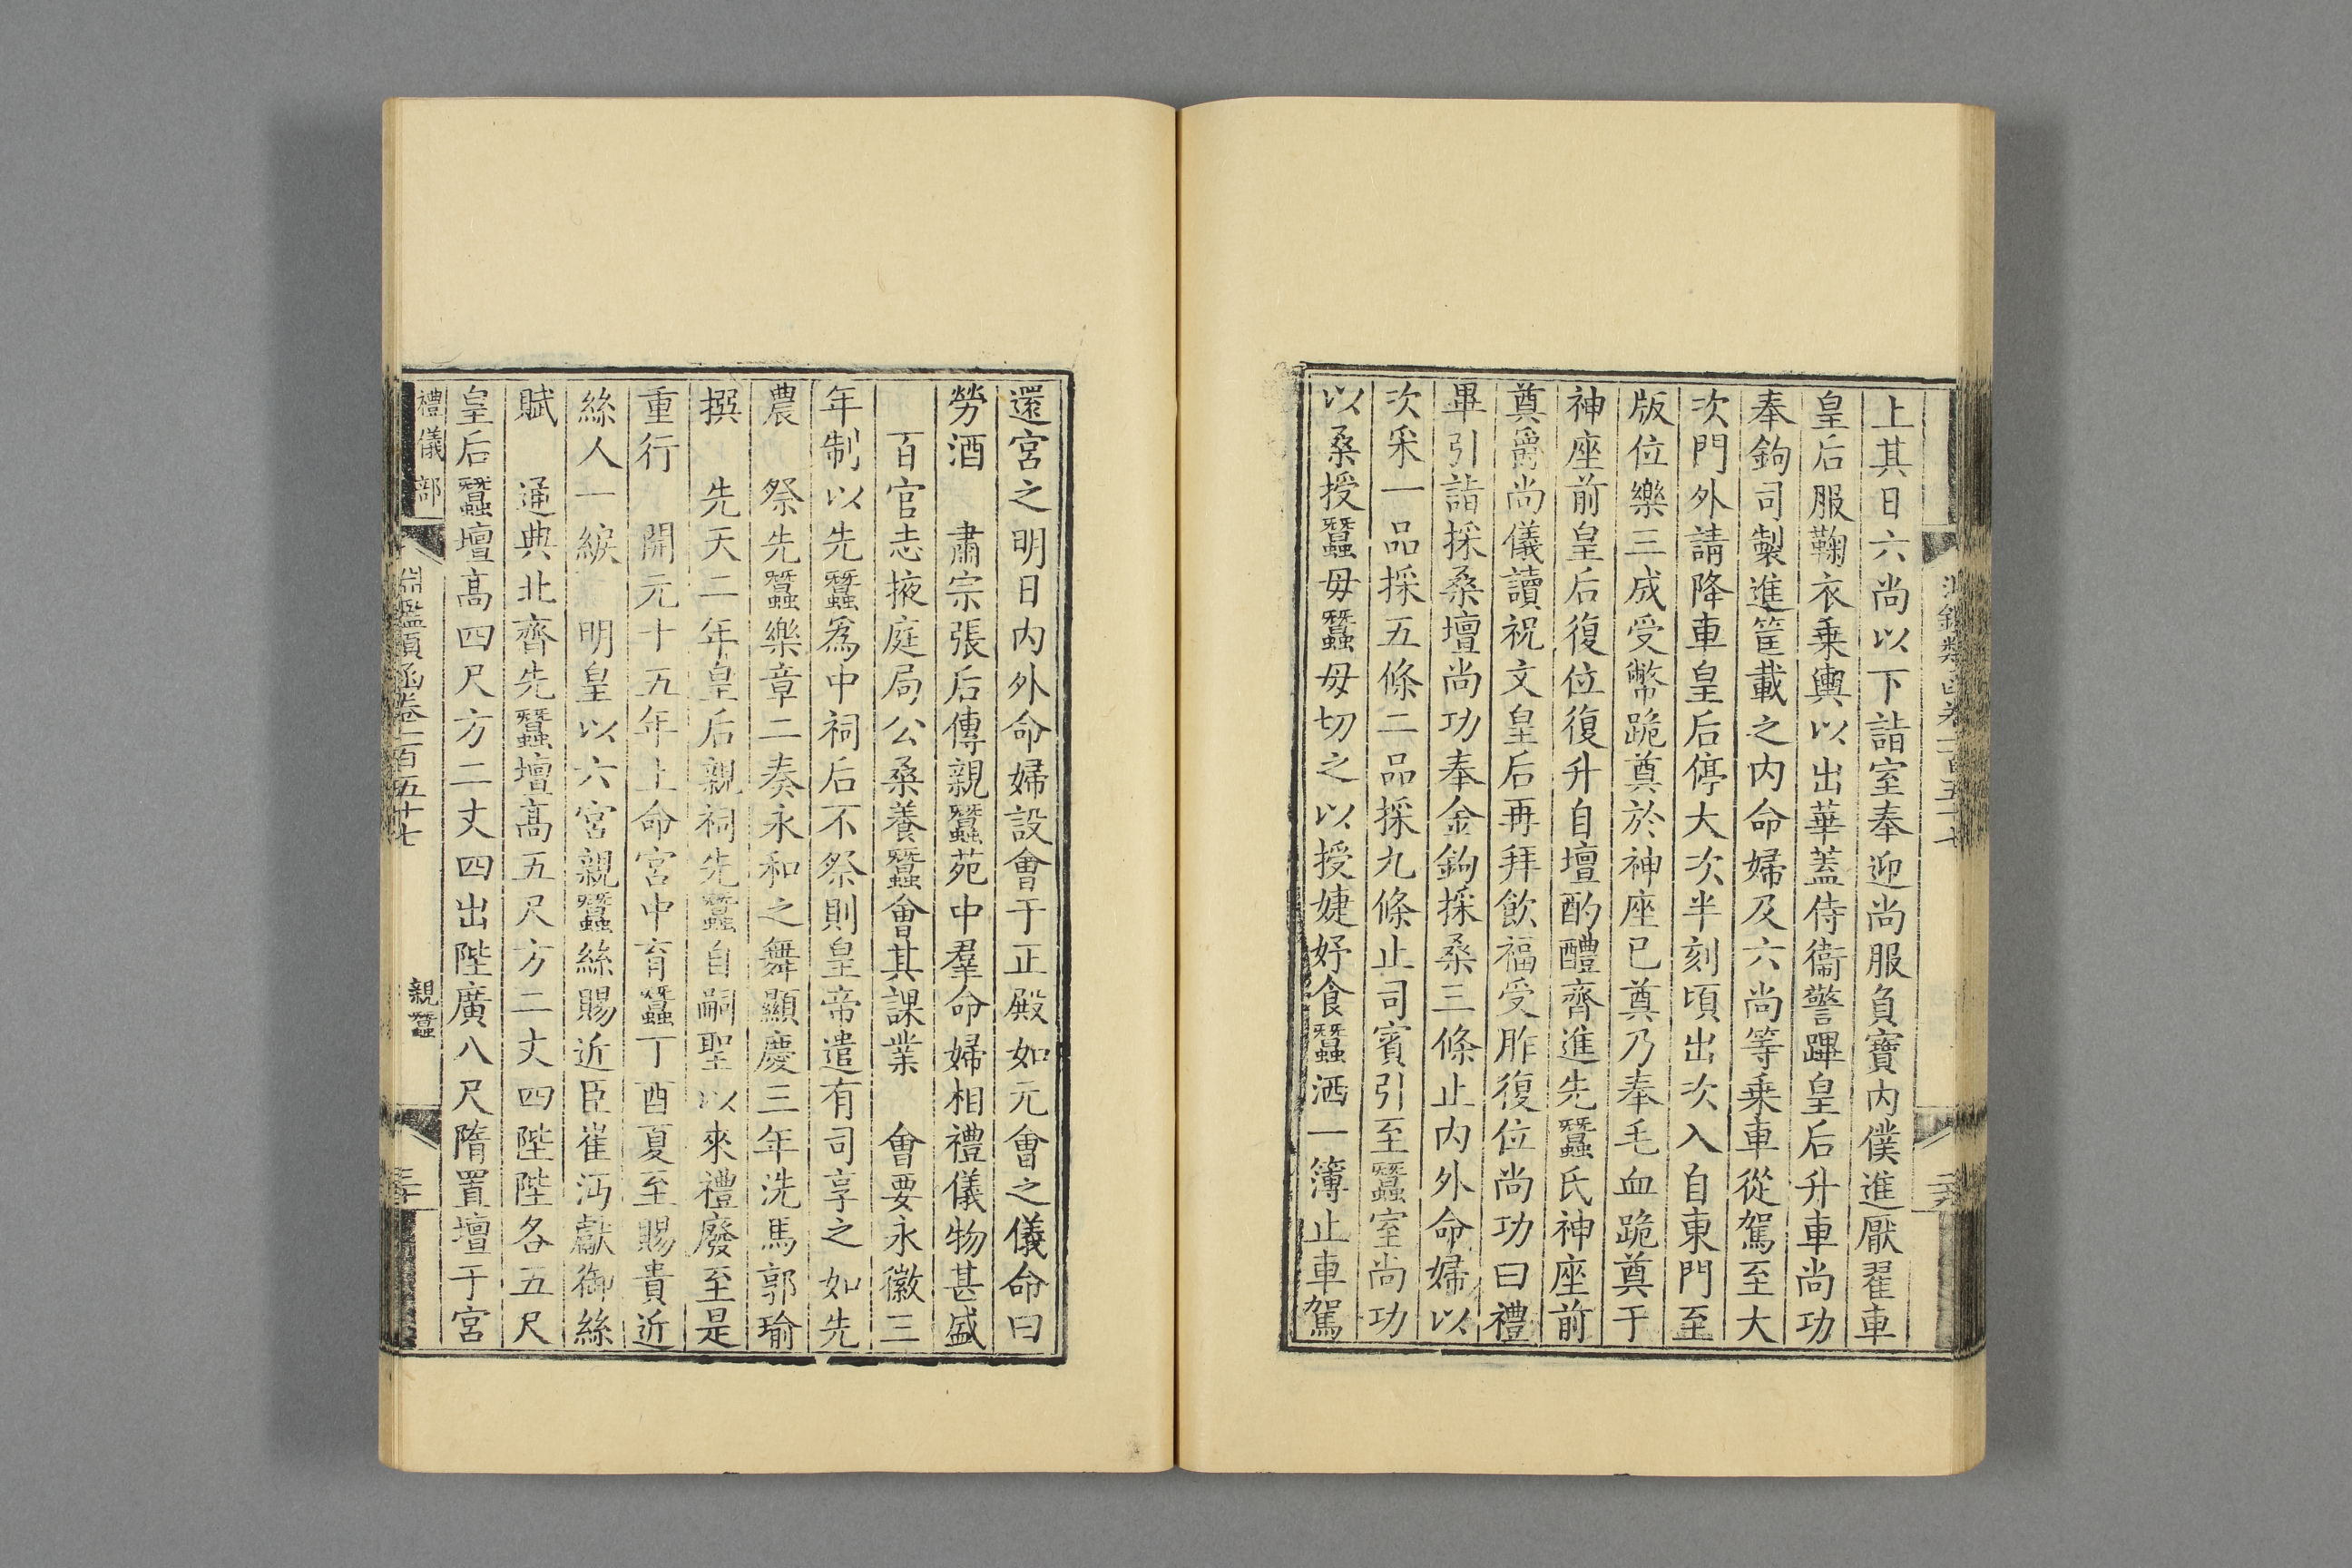 上其日六尚以下詣室奉迎尚服負寶內僕進厭翟車
皇后服鞠衣乗輿以出華蓋侍衞警蹕皇后升車尚功
奉鉤司製進筐載之內命婦及六尚等乗車從駕至大
次門外請降車皇后停大次半刻頃出次入自東門至
版位樂三成受幣跪奠於神座已奠乃奉毛血跪奠于
神座前皇后復位復升自壇酌醴齊進先蠶氏神座前
奠爵尚儀讀祝文皇后再拜飲福受胙復位尚功曰禮
畢引詣採桑壇尚功奉金鉤採桑三條止內外命婦以
次采一品採五條二品採九條止司賓引至蠶室尚功
以桑授蠶母蠶母切之以授婕妤食蠶洒一簿止車駕
還宮之明日內外命婦設會于正殿如元會之儀命曰
勞酒　肅宗張后傳親蠶苑中羣命婦相禮儀物甚盛
百官志掖庭局公桑養蠶會其課業　會要永徽三
年制以先蠶爲中祠后不祭則皇帝遣有司享之如先
農　祭先蠶樂章二奏永和之舞顯慶三年洗馬郭瑜
撰　先天二年皇后親祠先蠶自嗣聖以來禮廢至是
重行　開元十五年上命宮中育蠶丁酉夏至賜貴近
絲人一綟　明皇以六宮親蠶絲賜近臣崔沔獻御絲
賦　通典北齊先蠶壇高五尺方二丈四陛陛各五尺
皇后蠶壇高四尺方二丈四出陛廣八尺隋置壇于宮
禮儀部
淵鑑類函卷一百五十七
親蠶